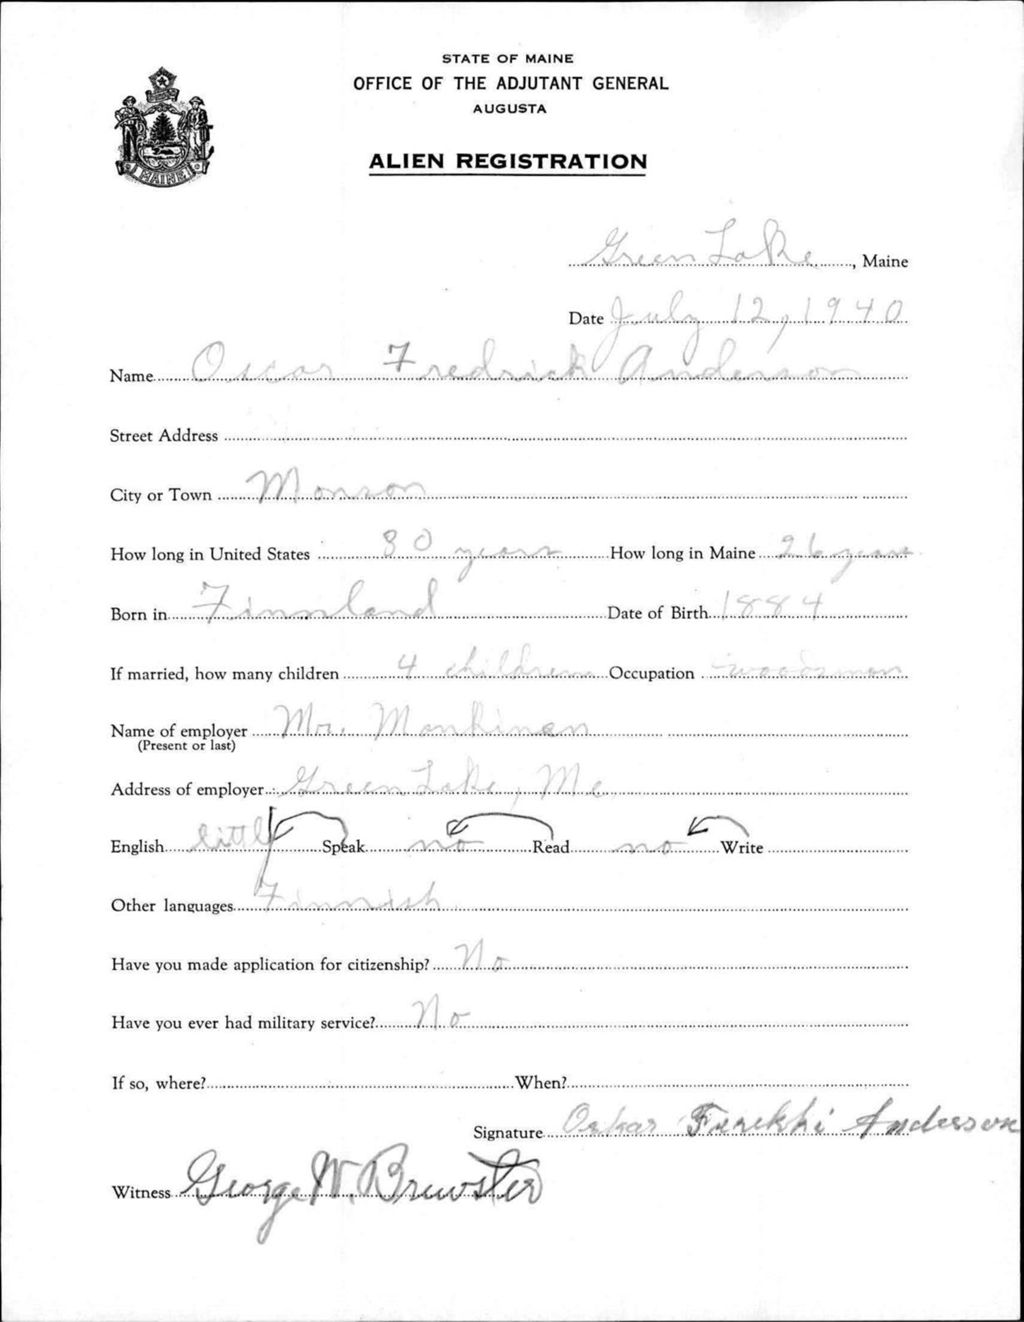 STATE OF MAINE
OFFICE OF THE ADJUTANT GENERAL
AUGUSTA
MAINE
ALIEN REGISTRATION
Green Lake, Maine
Date July 12, 1940
Name Oscar Fredrick Anderson
Street Address
City or Town Monson
How long in United States 30 years How long in Maine 26 years
Born in Finnland Date of Birth 1884
If married, how many children 4 children Occupation woodsman
Name of employer Mr. Monkinen
(Present or last)
Address of employer Green Lake, Me
English little Speak no Read no Write
Other languages Finnish
Have you made application for citizenship? No
Have you ever had military service? No
If so, where? When?
Signature Oskar Anderson
Witness George W. Brewster